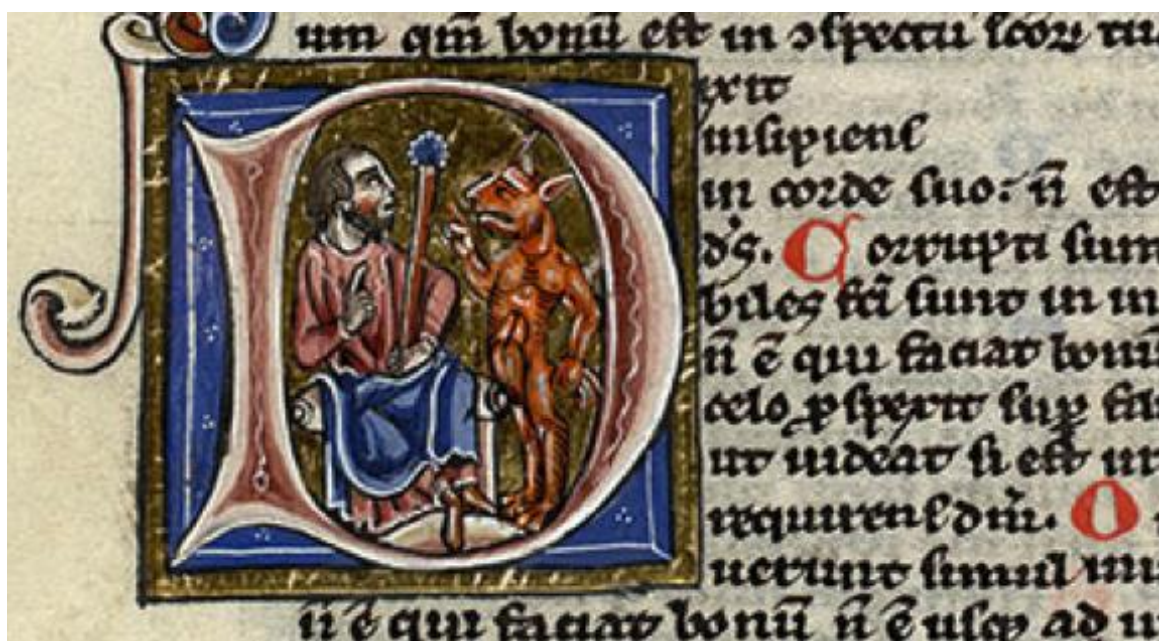 um qm̄ bonū est in ɔspectu scoꝝ tu
Dixit
insipiens
in corde suo: n̄ est
ds̄. Corrupti sun
biles fc̄i sunt in in
n̄ ē qui faciat bonū
celo ꝓspexit sup̄ fi
ut uideat si est in
requirens dm̄. O
uerunt simul inu
n̄ ē qui faciat bonū n̄ ē usqꝫ ad u